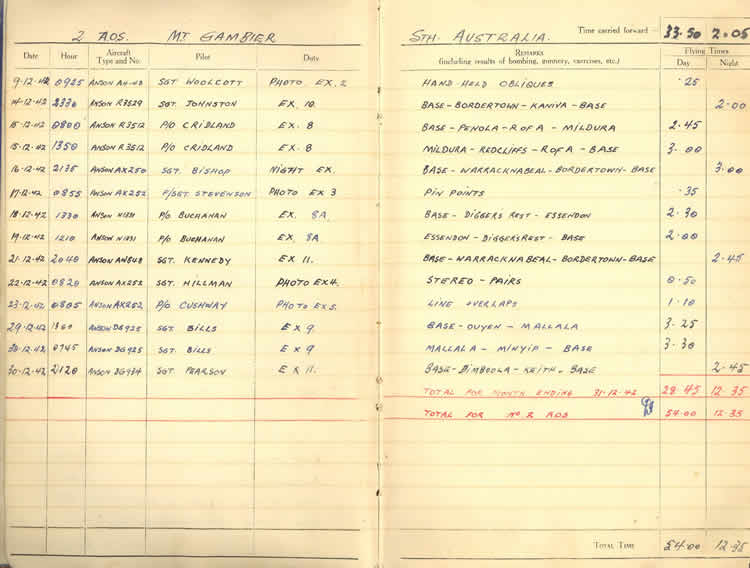 2 AOS. MT GAMBIER STH. AUSTRALIA. Time carried forward 33.50 2.05
Date Hour Aircraft Type and No. Pilot Duty REMARKS (including results of bombing, gunnery, exercises, etc.) Flying Times Day Night
9.12.42 0925 ANSON SGT WOOLCOTT PHOTO EX. 2 HAND HELD OBLIQUES .25
14.12.42 2330 ANSON R3529 SGT. JOHNSTON EX. 10 BASE-BORDERTOWN-KANIVA-BASE 2.00
15.12.42 0800 ANSON R3512 P/O CRIDLAND EX. 8 BASE-PENOLA-R OF A-MILDURA 2.45
15.12.42 1350 ANSON R3512 P/O CRIDLAND EX. 8 MILDURA-REDCLIFFS-R OF A-BASE 3.00
16.12.42 2135 ANSON AX250 SGT. BISHOP NIGHT EX. BASE-WARRACKNABEAL-BORDERTOWN-BASE 3.00
17.12.42 0855 ANSON AX252 F/SGT. STEVENSON PHOTO EX 3 PIN POINTS .35
18.12.42 1330 ANSON N1331 P/O BUCHANAN EX. 8A BASE-DIGGERS REST-ESSENDON 2.30
19.12.42 1210 ANSON N1331 P/O BUCHANAN EX. 8A ESSENDON-DIGGERS REST-BASE 2.00
21.12.42 2040 ANSON AW848 SGT. KENNEDY EX 11. BASE-WARRACKNABEAL-BORDERTOWN-BASE 2.45
22.12.42 0820 ANSON AX252 SGT. HILLMAN PHOTO EX4. STEREO-PAIRS 0.50
23.12.42 0805 ANSON AX252 P/O CUSHWAY PHOTO EX5. LINE OVERLAPS 1.10
29.12.42 ANSON DG925 SGT. BILLS EX 9 BASE-OUYEN-MALLALA 3.25
30.12.42 0745 ANSON DG925 SGT. BILLS EX 9 MALLALA-MINYIP-BASE 3.30
30.12.42 2120 ANSON DG934 SGT. PEARSON EX 11. BASE-DIMBOOLA-KEITH-BASE 2.45
TOTAL FOR MONTH ENDING 31.12.42 28.45 12.35
TOTAL FOR No 2 AOS 54.00 12.35
TOTAL TIME 54.00 12.35